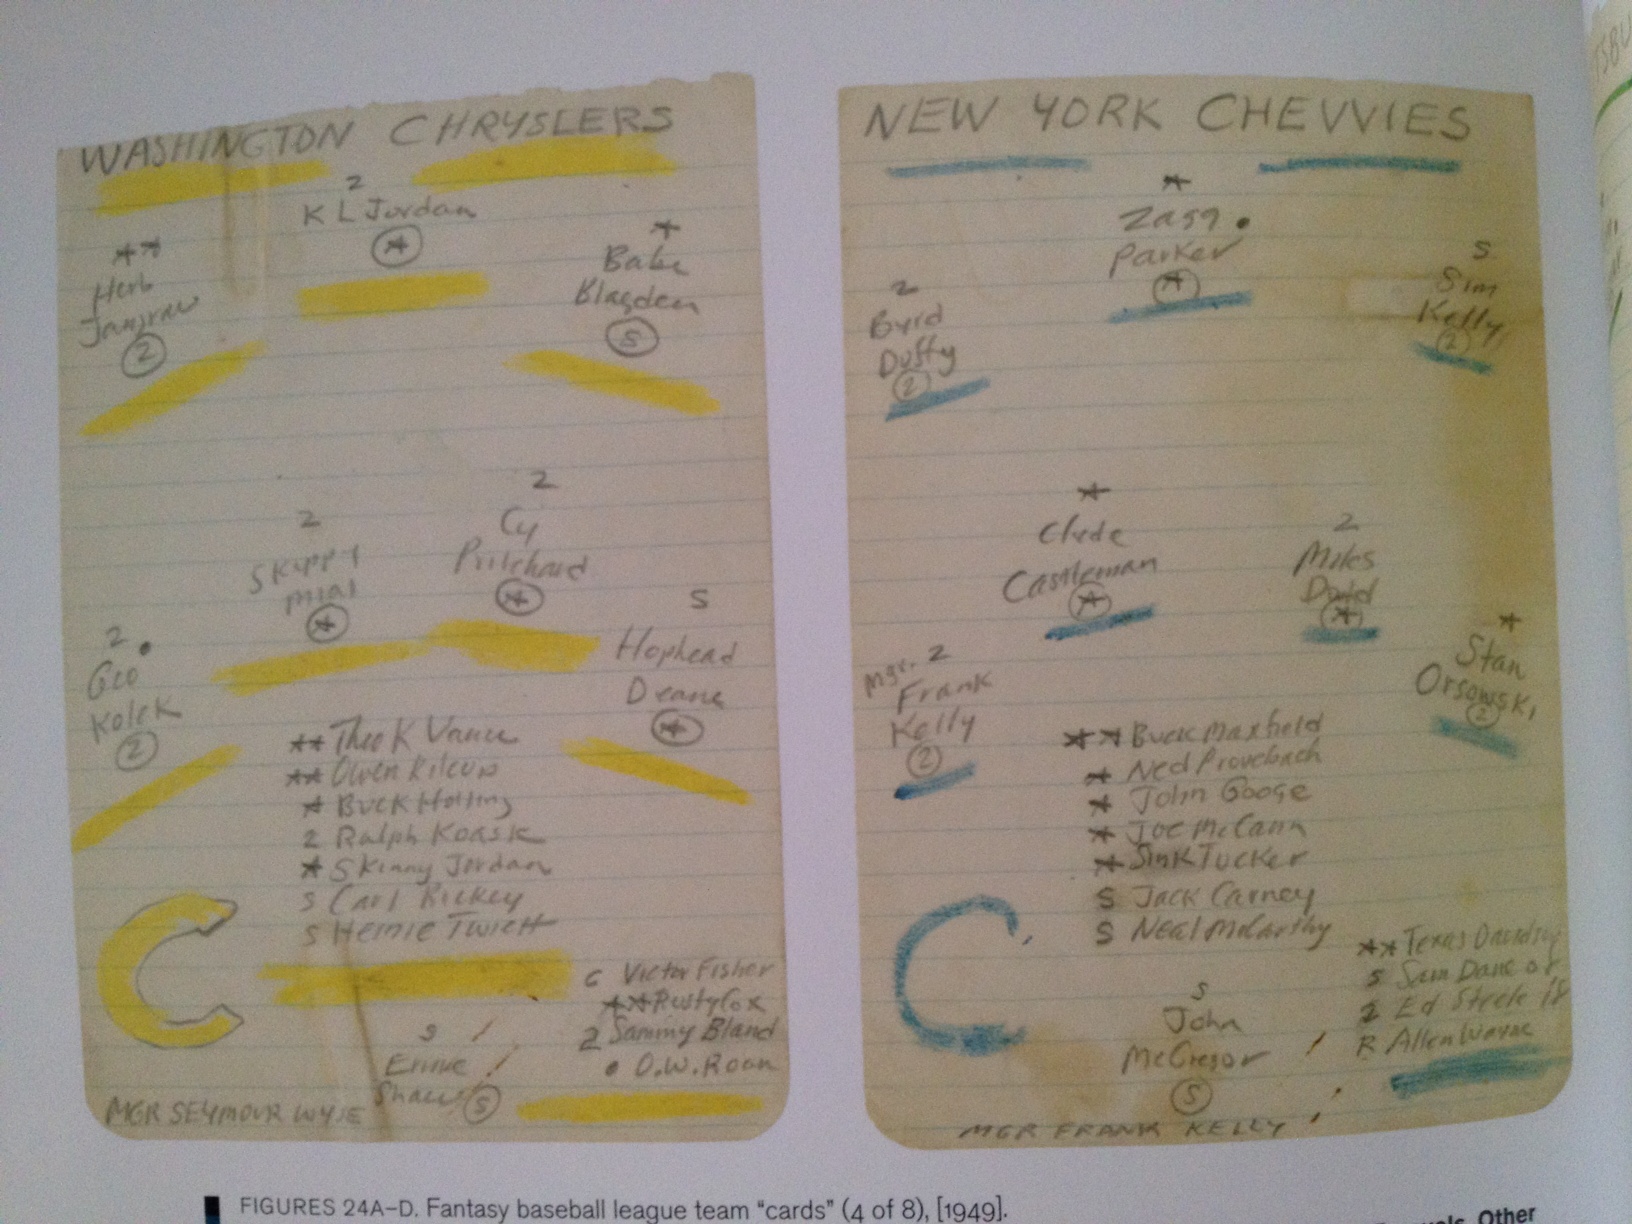 WASHINGTON CHRYSLERS
2
K L Jordan
**
Herb
Janiraw
2
*
Babe
Blagden
S
2
Skippy
Mial
*
2
Cy
Pritchard
*
2 .
Geo
Kolek
2
S
Hophead
Deane
*
** Theo K Vance
** Owen Kilcup
* Buck Holling
2 Ralph Koask
* Skinny Jordan
S Carl Rickey
S Hernie Twiett
C
6 Victor Fisher
** Rusty Cox
2 Sammy Bland
• O.W. Roan
S
Ernie
Shaw
S
MGR SEYMOUR WYSE
NEW YORK CHEVVIES
*
Zagg .
Parker
*
2
Byrd
Duffy
2
S
Sim
Kelly
2
*
Clyde
Castleman
*
2
Miles
David
*
Mgr. 2
Frank
Kelly
2
*
Stan
Orsowski
2
** Buck Maxfield
* Ned Provebach
* John Googe
* Joe McCann
* Sink Tucker
S Jack Carney
S Neal McCarthy
C
** Texas Davidson
S Sam Dane of
2 Ed Steele if
R Allen Wayne
S
John
McGregor
S
MGR FRANK KELLY
FIGURES 24A–D. Fantasy baseball league team “cards” (4 of 8), [1949].
Other